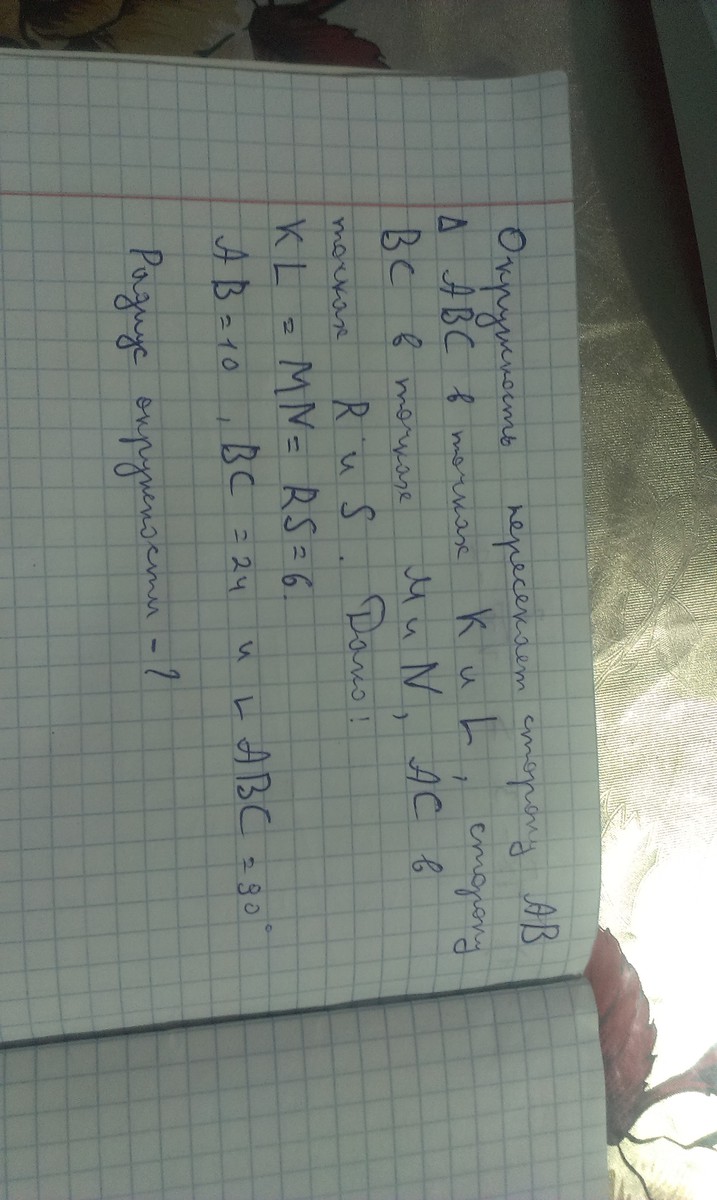 Окружность пересекает сторону АВ
Δ АВС в точках K и L, сторону
ВС в точках M и N, АС в
точках R и S. Дано!
KL = MN = RS = 6.
АВ = 10, ВС = 24 и ∟ АВС = 90°
Радиус окружности - ?